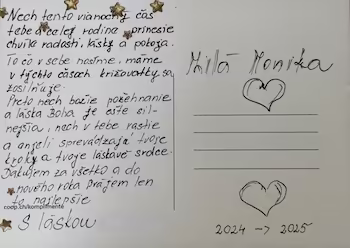 Nech tento vianočný čas
tebe a celej rodine prinesie
chvíle radosti, lásky a pokoja.
To čo v sebe nosíme, máme
v týchto časoch križovatky sa
zosilňuje.
Preto nech božie požehnanie
a láska Boha je ešte sil-
nejšia, nech v tebe rastie
a anjeli sprevádzajú tvoje
kroky a tvoje láskavé srdce.
Ďakujem za všetko a do
nového roka Prajem len
to najlepšie
coop.ch/komplimente
S láskou
Milá Monika
2024 → 2025